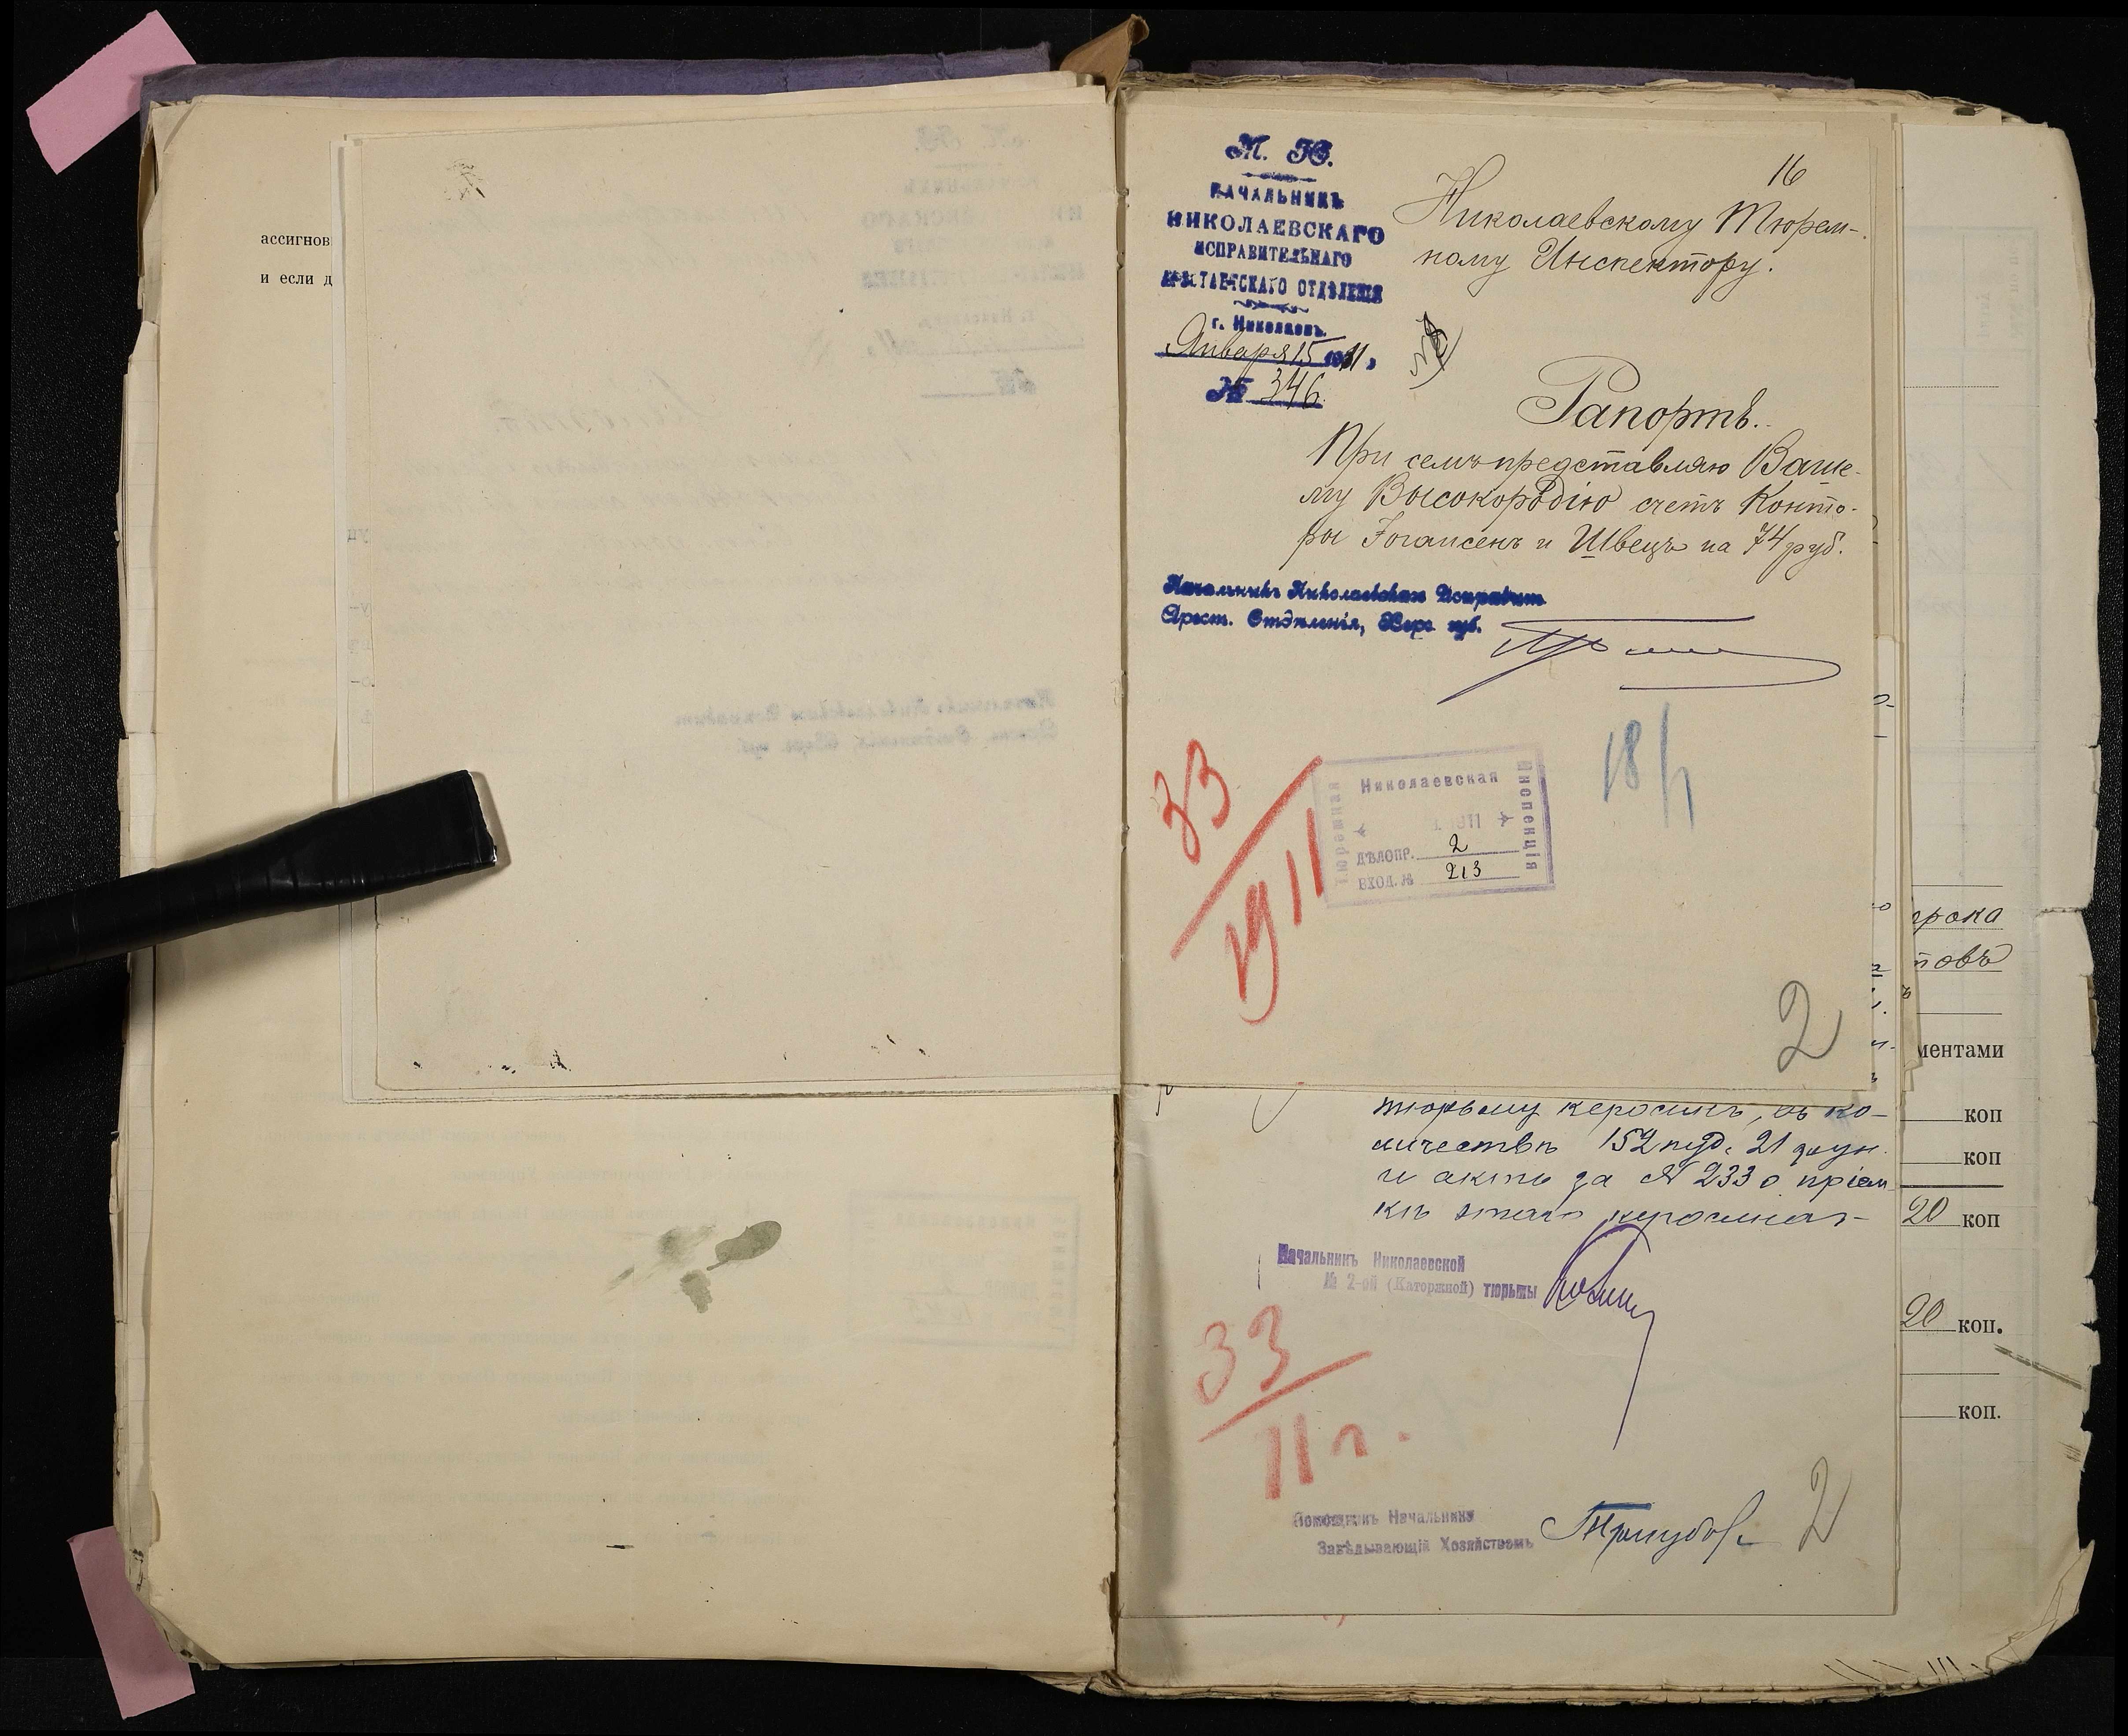 ассигнов
и если д
16
М. Ю.
НАЧАЛЬНИКЪ
НИКОЛАЕВСКАГО
ИСПРАВИТЕЛЬНАГО
АРЕСТАНТСКАГО ОТДѢЛЕНІЯ
г. Николаевъ.
Января 15 1911 г.
№ 346
Николаевскому Тюрем-
ному Инспектору.
Рапортъ.
При семъ представляю Ваше-
му Высокородію счетъ Конто-
ры Іогансенъ и Швецъ на 74 руб.
Начальникъ Николаевскаго Исправит.
Арест. Отдѣленія, Херс. губ.
18/1
33
1911
Николаевская
Тюремная
Инспекція
1911
ДѢЛОПР. 2
ВХОД. № 213
2
тюрьму керосинъ, въ ко-
личествѣ 152 пуд. 21 фун.
и актъ за № 233 о пріем
кѣ этого керосина.-
Начальникъ Николаевской
№ 2-ой (Каторжной) тюрьмы
33
11 г.
Помощникъ Начальника
Завѣдывающій Хозяйствомъ
2
рока
товъ
ментами
коп
коп
20 коп
20 коп.
коп.